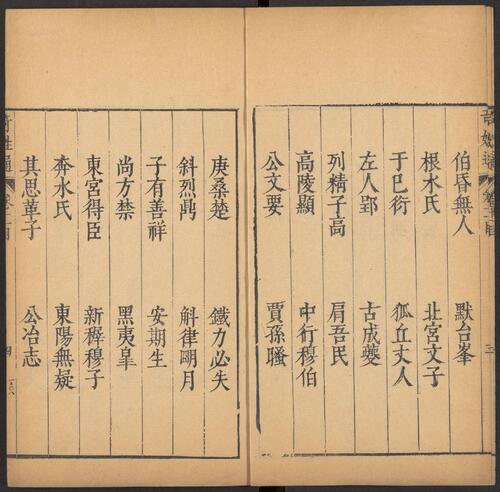 伯昏無人 默台峯
根水氏 北宮文子
于巳衍 狐丘丈人
左人郢 古成夔
列精子高 肩吾民
高陵顯 中行穆伯
公文要 賈孫騷
庚桑楚 鐵力必失
斜烈鼎 斛律明月
子有善祥 安期生
尚方禁 黑夷皐
東宮得臣 新穉穆子
奔水氏 東陽無疑
其思革子 公冶志
奇姓通 卷二目 四